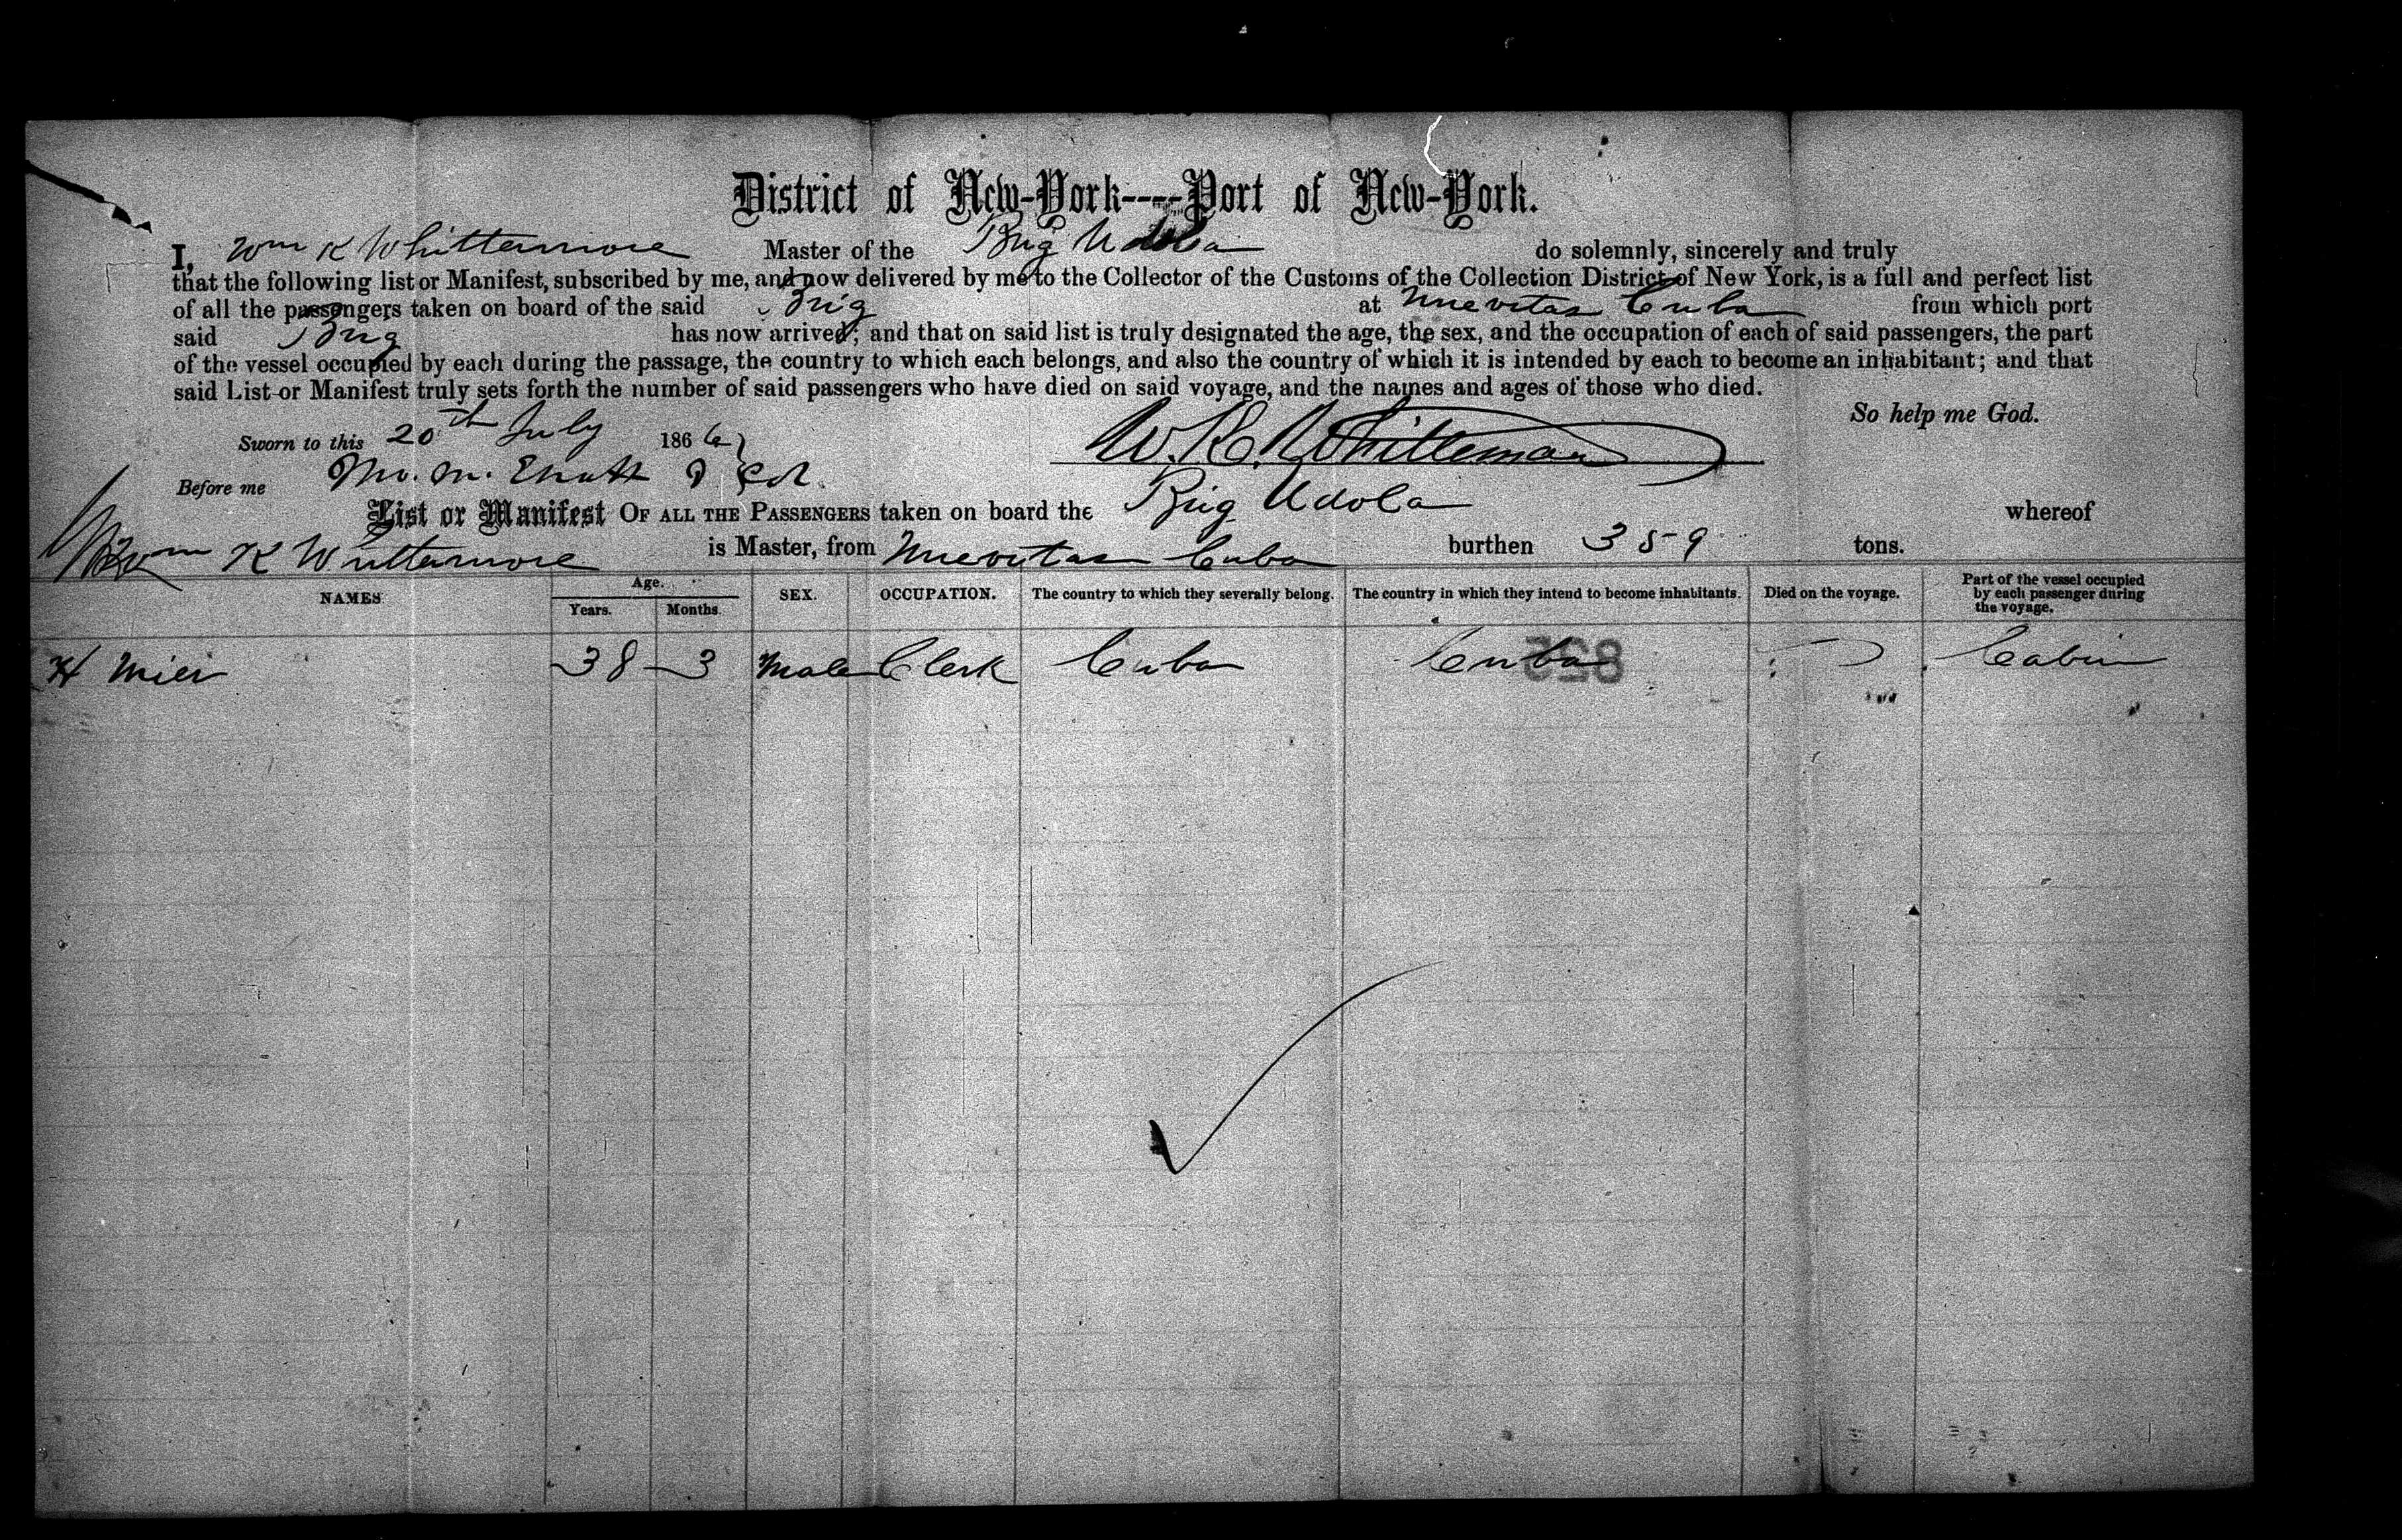 District of New-York----Port of New-York.
I, Wm K Whittemore Master of the Brig Udola do solemnly, sincerely and truly
that the following list or Manifest, subscribed by me, and now delivered by me to the Collector of the Customs of the Collection District of New York, is a full and perfect list
of all the passengers taken on board of the said Brig at Nuevitas Cuba from which port
said Brig has now arrived; and that on said list is truly designated the age, the sex, and the occupation of each of said passengers, the part
of the vessel occupied by each during the passage, the country to which each belongs, and also the country of which it is intended by each to become an inhabitant; and that
said List or Manifest truly sets forth the number of said passengers who have died on said voyage, and the names and ages of those who died.
So help me God.
Sworn to this 20th July 1866
W. K. Whittemore
Before me
List or Manifest OF ALL THE PASSENGERS taken on board the Brig Udola whereof
Wm K Whittemore is Master, from Nuevitas Cuba burthen 359 tons.
NAMES Age. Years. Months. SEX. OCCUPATION. The country to which they severally belong. The country in which they intend to become inhabitants. Died on the voyage. Part of the vessel occupied by each passenger during the voyage.
H Mier 38 3 Male Clerk Cuba Cuba Cabin